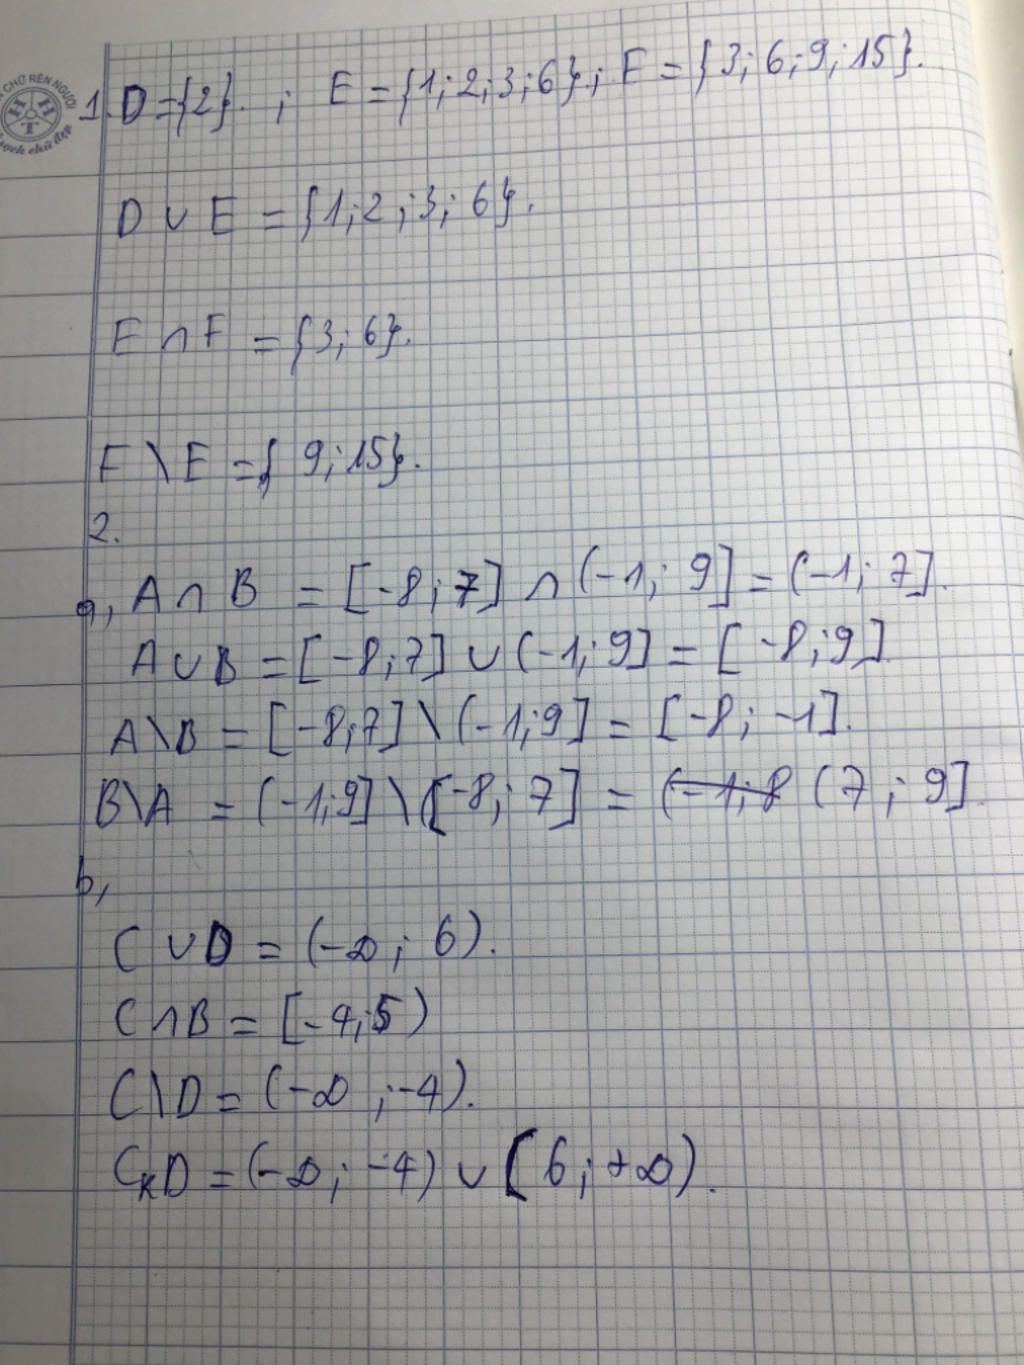 CHỮ RÈN NGƯỜI
HHT
sạch chữ đẹp
1. D = {2}. ; E = {1; 2; 3; 6}; F = {3; 6; 9; 15}.
D ∪ E = {1; 2; 3; 6}.
E ∩ F = {3; 6}.
F \ E = { 9; 15}.
2.
a, A ∩ B = [-8; 7] ∩ (-1; 9] = (-1; 7].
A ∪ B = [-8; 7] ∪ (-1; 9] = [-8; 9]
A \ B = [-8; 7] \ (-1; 9] = [-8; -1].
B \ A = (-1; 9] \ [-8; 7] = (-1; 8 (7; 9]
b,
C ∪ D = (-∞; 6).
C ∩ B = [-4; 5)
C \ D = (-∞; -4).
CRD = (-∞; -4) ∪ [6; +∞).